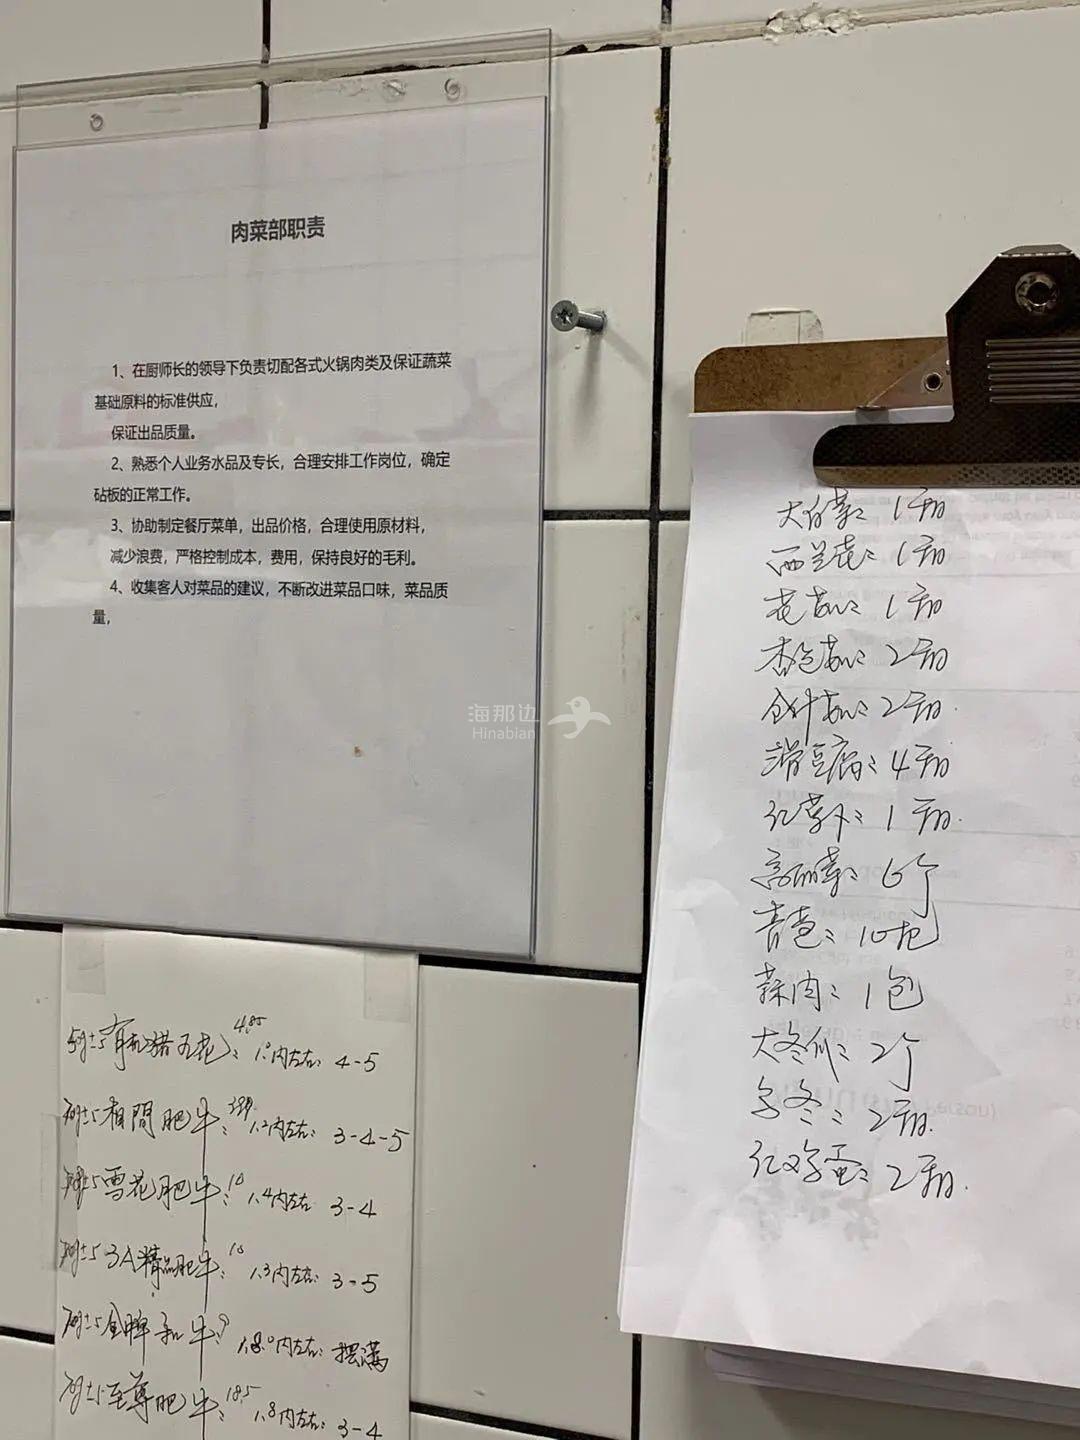 肉菜部职责
1、在厨师长的领导下负责切配各式火锅肉类及保证蔬菜
基础原料的标准供应，
保证出品质量。
2、熟悉个人业务水品及专长，合理安排工作岗位，确定
砧板的正常工作。
3、协助制定餐厅菜单，出品价格，合理使用原材料，
减少浪费，严格控制成本，费用，保持良好的毛利。
4、收集客人对菜品的建议，不断改进菜品口味，菜品质
量，
海那边
Hinabian
大白菜：1箱
西兰花：1箱
花菇：1箱
杏包菇：2箱
金针菇：2箱.
滑豆腐：4箱
1箱.
高丽菜：6个
青苞：10包
蒜肉：1包
大冬瓜：2个
2箱.
红鸡蛋：2箱.
有机猪五花：4.85 1.0内左右：4-5
相間肥牛： 1.2内左右：3-4-5
雪花肥牛：10 1.4内左右 3-4
3A精品肥牛：10 1.3内左右：3-5
和牛：内左右：摆满
至尊肥牛：18.5 1.8内左右：3-4